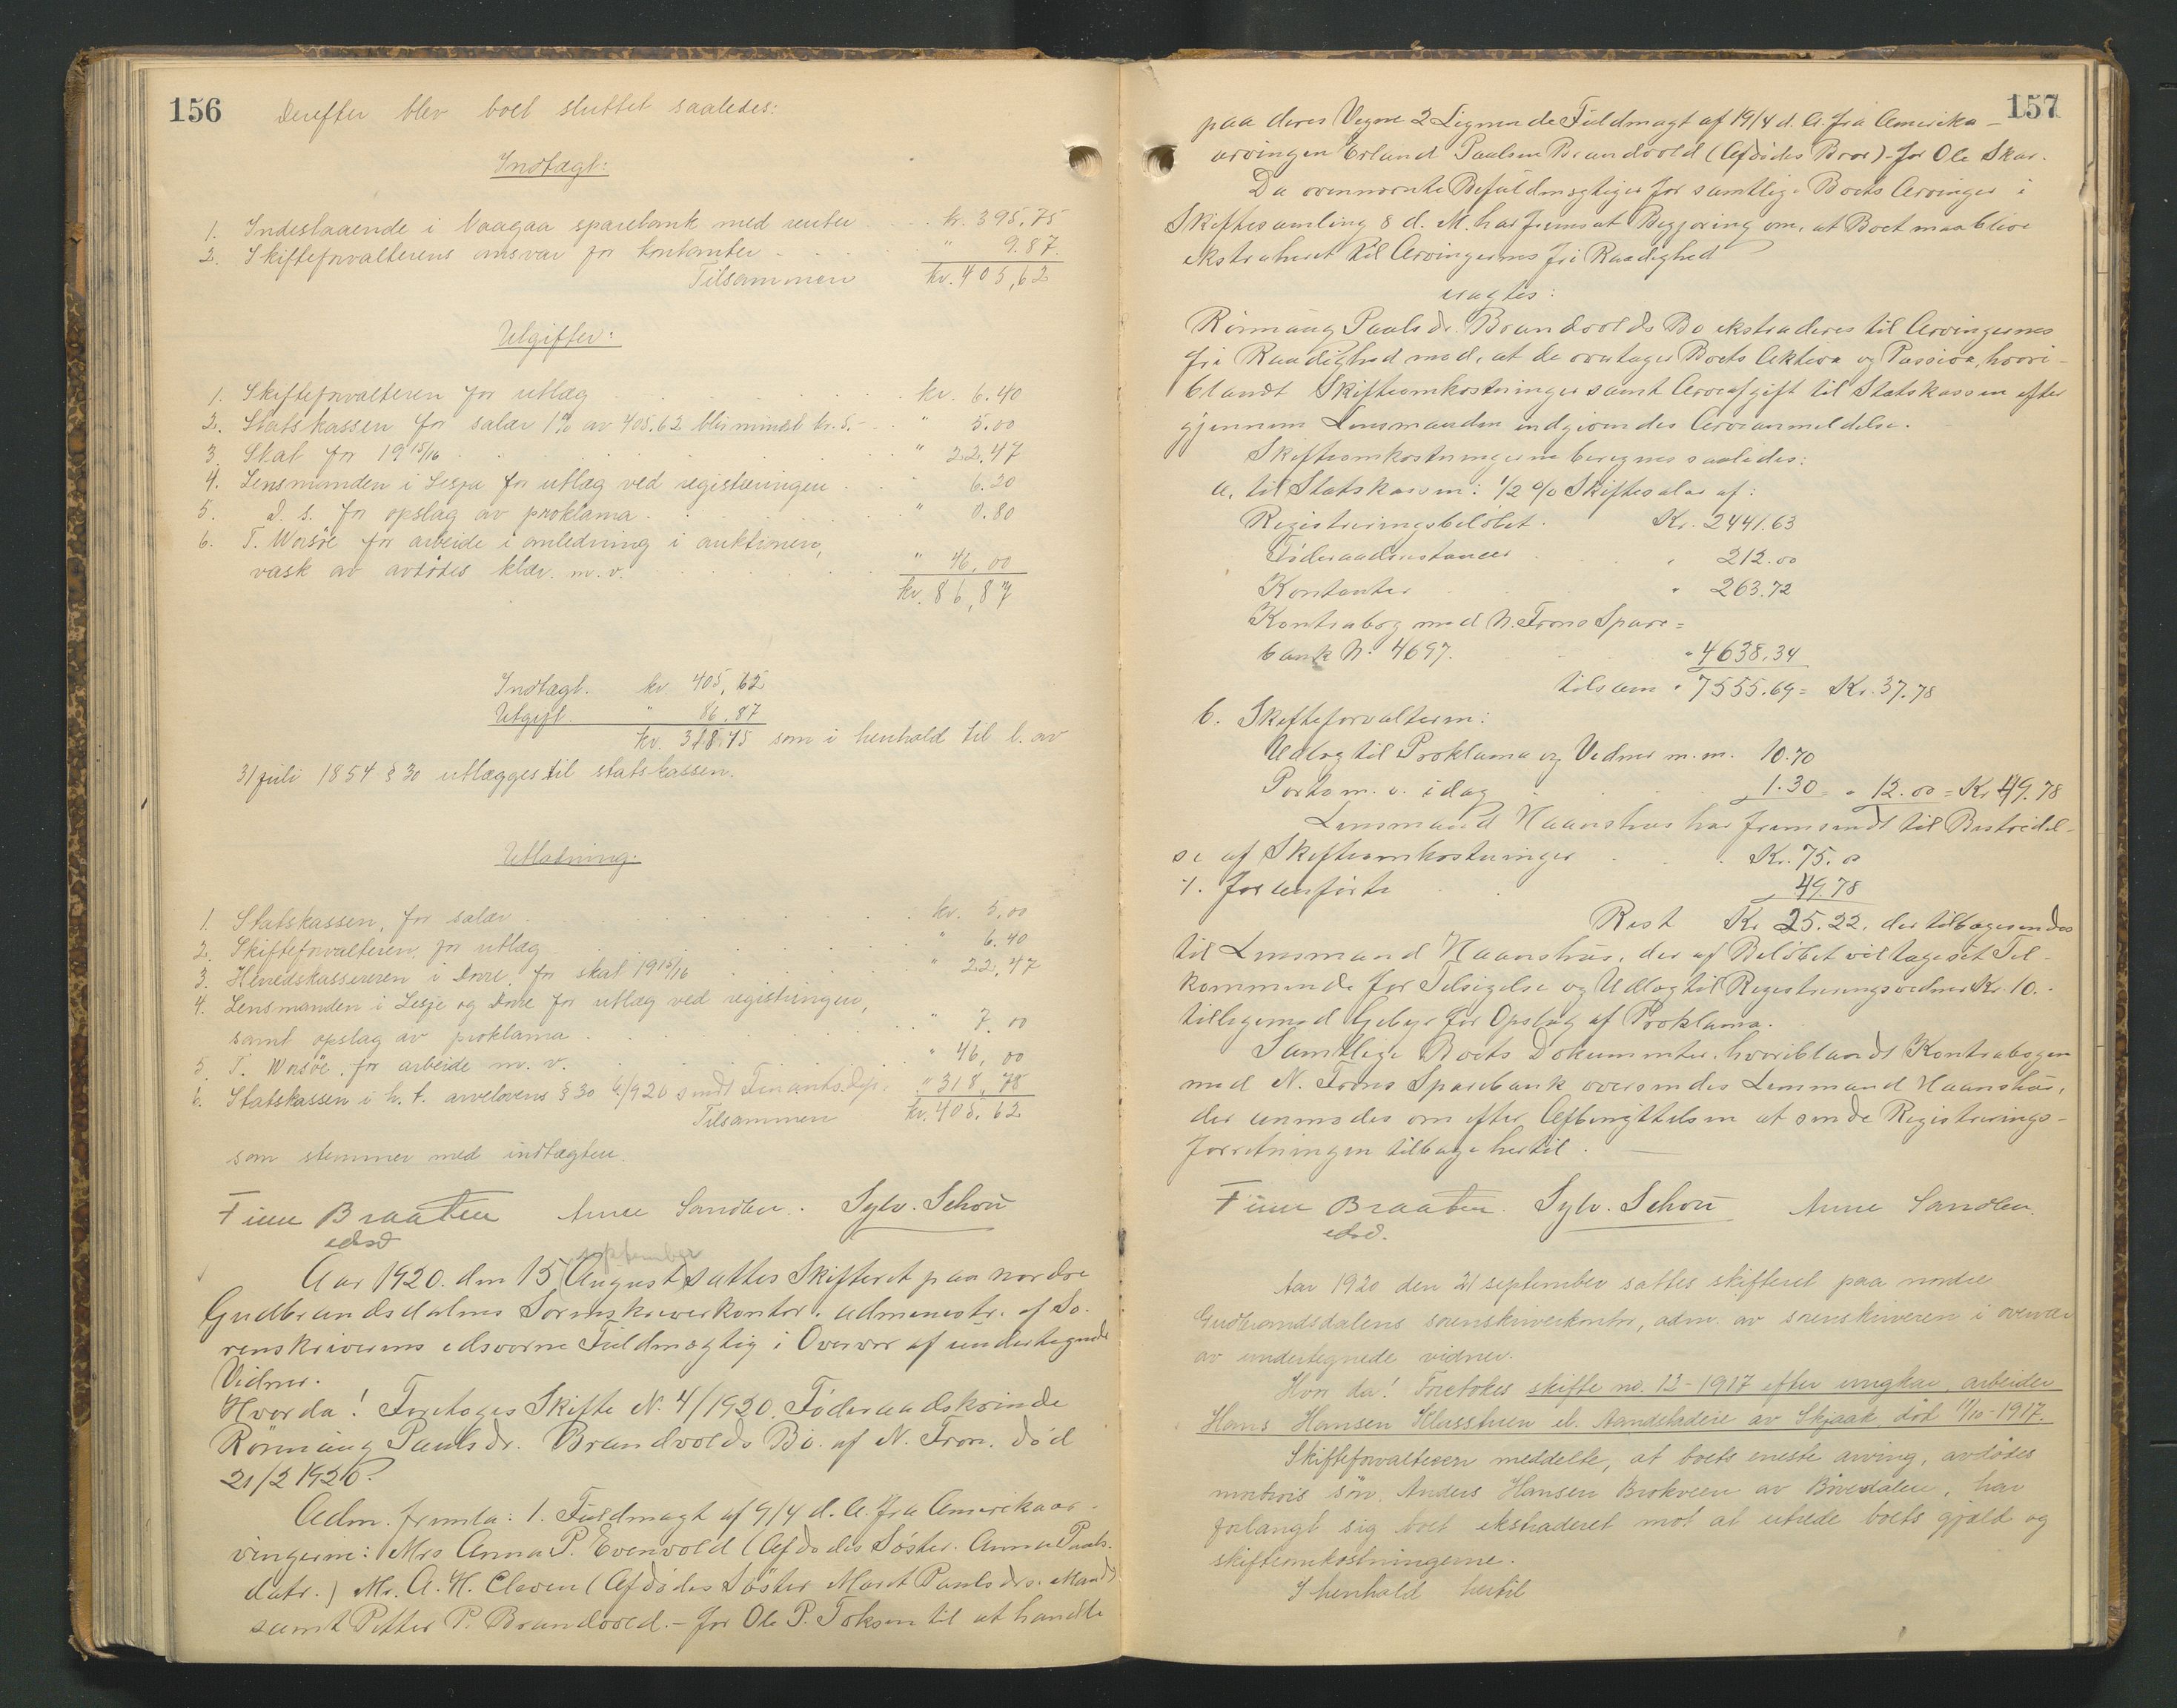 156
Derefter blev boet sluttet saaledes:
Indtægt:
1. Indestaaende i Vaagaa sparebank med renter kr. 395,75
2. Skifteforvalterens ansvar for kontanter " 9.87.
Tilsammen kr. 405,62
Utgifter:
1. Skifteforvalteren for utlæg kr. 6.40
2. Statskassen for salær 1% av 405.62 blir mindst kr. 5.- " 5.00
3. Skat for 1915/16 " 22,47
4. Lensmanden i Lesja for utlæg ved registreringen " 6.20
5. D. s. for opslag av proklama " 0.80
6. T. Worsöe for arbeide i anledning i auktionen,
vask av avdødes klær. m. v. " 46,00
kr. 86,87
Indtægt. kr 405,62
Utgift. " 86,87
kr. 318.75 som i henhold til l. av
31 juli 1854 § 30 utlægges til statskassen.
Utlodning:
1. Statskassen, for salær kr. 5,00
2. Skifteforvalteren, for utlæg " 6.40
3. Herredskassereren i Dovre, for skat 1915/16 " 22,47
4. Lensmanden i Lesje og Dovre for utlæg ved registringen,
samt opslag av proklama " 7.00
5. T. Worsöe, for arbeide m. v. " 46,00
6. Statskassen i h. t. arvelovens § 30 6/920 sendt Finants.dep. " 318,78
Tilsammen kr. 405.62
som stemmer med indtægten.
Finn Braaten Anne Sandbu. Sylv. Schou
edsv
september
Aar 1920. den 15 (August) sattes Skifteret paa nordre
Gudbrandsdalens Sorenskriverkontor. administr. af So-
renskriverens edsvorne Fuldmægtig i Overvær af undertegnede
Vidner.
Hvorda! Foretoges Skifte N. 4/1920. Føderaadskvinde
Rönnaug Paulsdr. Brandvolds Bo. af N. Fron. död
21/2 1920.
Adm. fremla: 1. Fuldmagt af 9/4 d. A. fra Amerikaar-
vingerne: Mrs Anna P. Evenvold (Afdødes Søster. Anna Pauls-
datr.) Mr. A. H. Cleven (Afdødes Søster Marit Paulsdrs. Mand)
samt Petter P. Brandvold. - for Ole P. Toksen til at handle
157
paa deres Vegne 2 Lignende Fuldmagt af 19/4 d. A. fra Amerika-
arvingen Erland Paulsen Brandvold (Afdødes Bror) - for Ole Skar.
Da ovennævnte Befuldmægtiger for samtlige Boets Arvinger i
Skiftesamling 8 d. M. har fremsat Begjæring om, at Boet maa blive
ekstraheret til Arvingernes fri Raadighed
eragtes:
Rönnaug Paulsdr. Brandvolds Bo ekstraderes til Arvingernes
fri Raadighed mod, at de overtager Boets Aktiva og Passiva, hvori-
blandt Skifteomkostninger samt Arveafgift til Statskassen efter
gjennem Lensmanden indgivendes Arveanmeldelse.
Skifteomkostningerne beregnes saaledes:
a. til Statskassen: 1/2 % Skiftesalær af:
Registreringsbeløbet. Kr. 2441.63
Føderaadsrestancer " 212.00
Kontanter " 263.72
Kontrabog med N. Frons Spare=
bank N. 4697. " 4638.34
tilsam " 7555.69 = Kr. 37.78
b. Skifteforvalteren:
Udlæg til Proklama og Vidner m. m. 10.70
Porto m. v. idag 1.30 = " 12.00 = Kr 49.78
Lensmand Haanshus har fremsendt til Bestridel-
se af Skifteomkostninger Kr. 75.00
÷ for anførte 49.78
Rest Kr 25.22, der tilbagesendes
til Lensmand Haanshus, der af Beløbet vil tage sit Til-
kommende for Tilsigelse og Udlæg til Registreringsvidner Kr. 10.-
tilligemed Gebyr for Opslag af Proklama.
Samtlige Boets Dokumenter. hvoriblandt Kontrabogen
med N. Frons Sparebank oversendes Lensmand Haanshus,
der anmodes om efter Afbenyttelsen at sende Registrerings-
forretningen tilbage hertil.
Finn Braaten. Sylv. Schou Anne Sandbu.
edsv.
Aar 1920 den 21 september sattes skifteret paa nordre
Gudbrandsdalens sorenskriverkontor, adm. av sorenskriveren i overvær
av undertegnede vidner.
Hvor da! Foretokes skifte no. 12-1917 efter ungkar, arbeider
Hans Hansen Klusstuen el. Aandstadeie av Skjaak, död 11/10-1917.
Skifteforvalteren meddelte, at boets eneste arving, avdødes
morbrors sön. Anders Hansen Brokveen av Böverdalen, har
forlangt sig boet ekstraderet mot at utrede boets gjæld og
skifteomkostningerne.
I henhold hertil